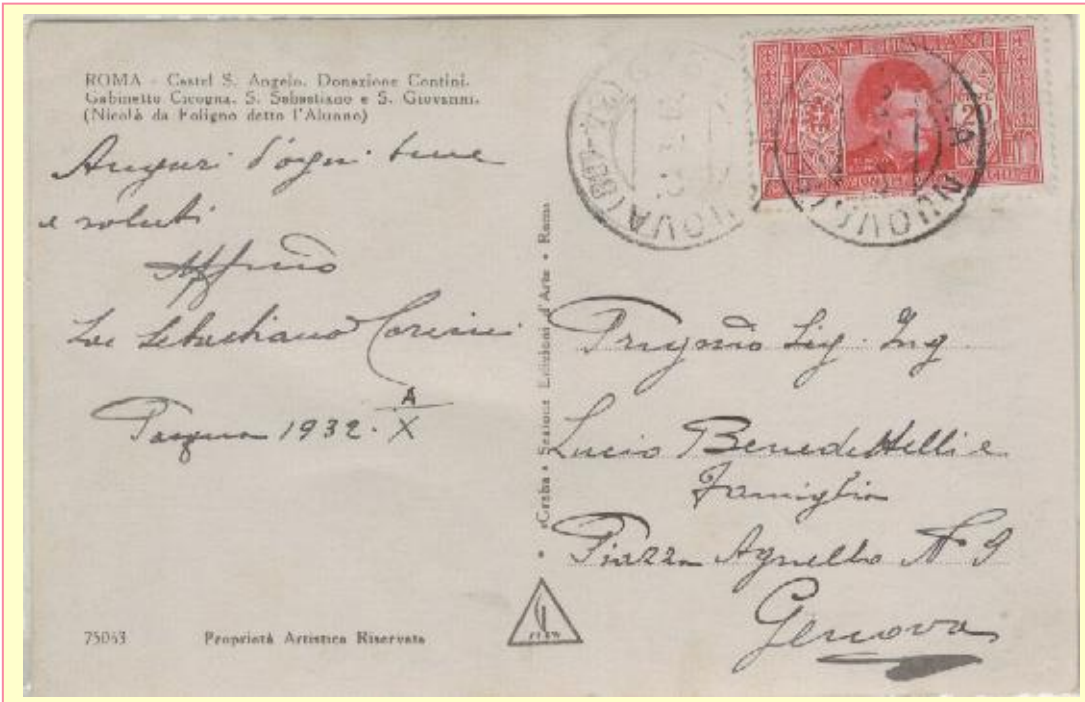 ROMA - Castel S. Angelo. Donazione Contini.
Gabinetto Cicogna. S. Sebastiano e S. Giovanni.
(Nicolò da Foligno detto l'Alunno)
Auguri d'ogni bene
e saluti
Affmo
Sebastiano
Pasqua 1932 - A
X
75053 Proprietà Artistica Riservata
Sezione Edizioni d'Arte • Roma
POSTE ITALIANE
20
NUOVA
NUOVA
Sig. Ing.
Lucio Benedettelli e
Famiglia
Piazza Agnello N 9
Genova